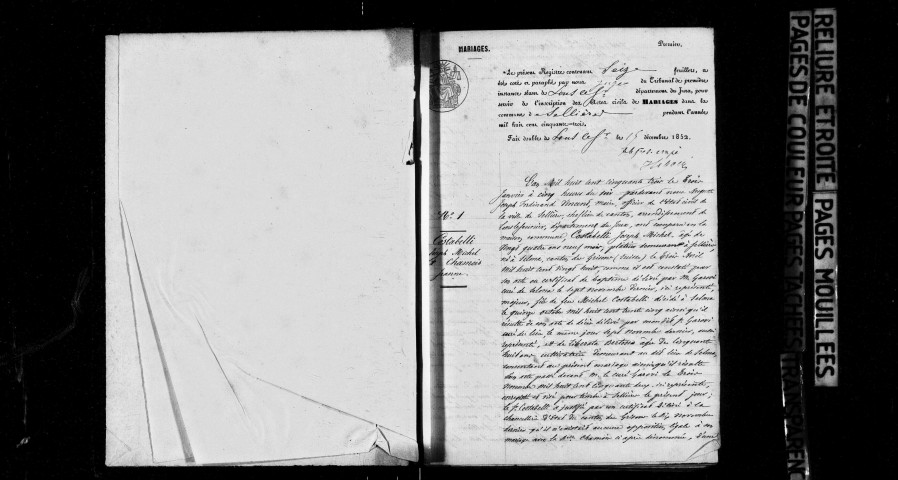 MARIAGES.
Dernier.
Le présent Registre contenant Seize feuillets, a
été coté et paraphé par nous juge du Tribunal de première
instance séant de Lons le S.r département du Jura, pour
servir de l'inscription des Actes civils de MARIAGES dans la
commune d Sellières pendant l'année
mil huit cent cinquante-trois.
Fait double de Lons le S.r le 15 décembre 1852.
L'an Mil huit cent cinquante trois le trois
Janvier à cinq heures du soir, pardevant nous Auguste
Joseph Ferdinand Vincent, maire, officier de l'état civil de
la ville de Sellières, chef-lieu de canton, arrondissement de
Lons-le-Saunier, département du Jura, ont comparu en la
maison commune, Costabelli Joseph Michel, âgé de
vingt quatre ans neuf mois, plâtrier demeurant à Sellières
né à Selma, canton des Grisons (Suisse) le trois Avril
Mil huit cent vingt huit, comme il est constaté par
son acte ou certificat de baptême délivré par M. Garovi
curé de Selma le sept novembre dernier, ici représenté
majeur, fils de feu Michel Costabelli décédé à Selma
le quinze octobre mil huit cent trente cinq ainsi qu'il
résulte de son acte de décès délivré par mondit S. Garovi
curé du lieu, le même jour sept novembre dernier, aussi
représenté, et de Liberata Bertossa âgée de cinquante
huit ans cultivatrice demeurant au dit lieu de Selma,
consentant au présent mariage ainsi qu'il résulte
d'un acte passé devant M. le curé Garovi le trois
novembre mil huit cent cinquante deux, ici représenté,
enregistré et visé pour timbre à Sellières le présent jour;
le S. Costabelli a justifié par un certificat délivré à la
chancellerie d'état du canton des Grisons le dix novembre
dernier qu'il n'existait aucune opposition légale à son
mariage avec la d.lle Chamois ci après dénommée, d'une
N.o 1
Costabelli
Joseph Michel
et Chamois
Jeanne.
RELIURE ETROITE PAGES MOUILLEES
PAGES DE COULEUR PAGES TACHEES TRANSPARENT